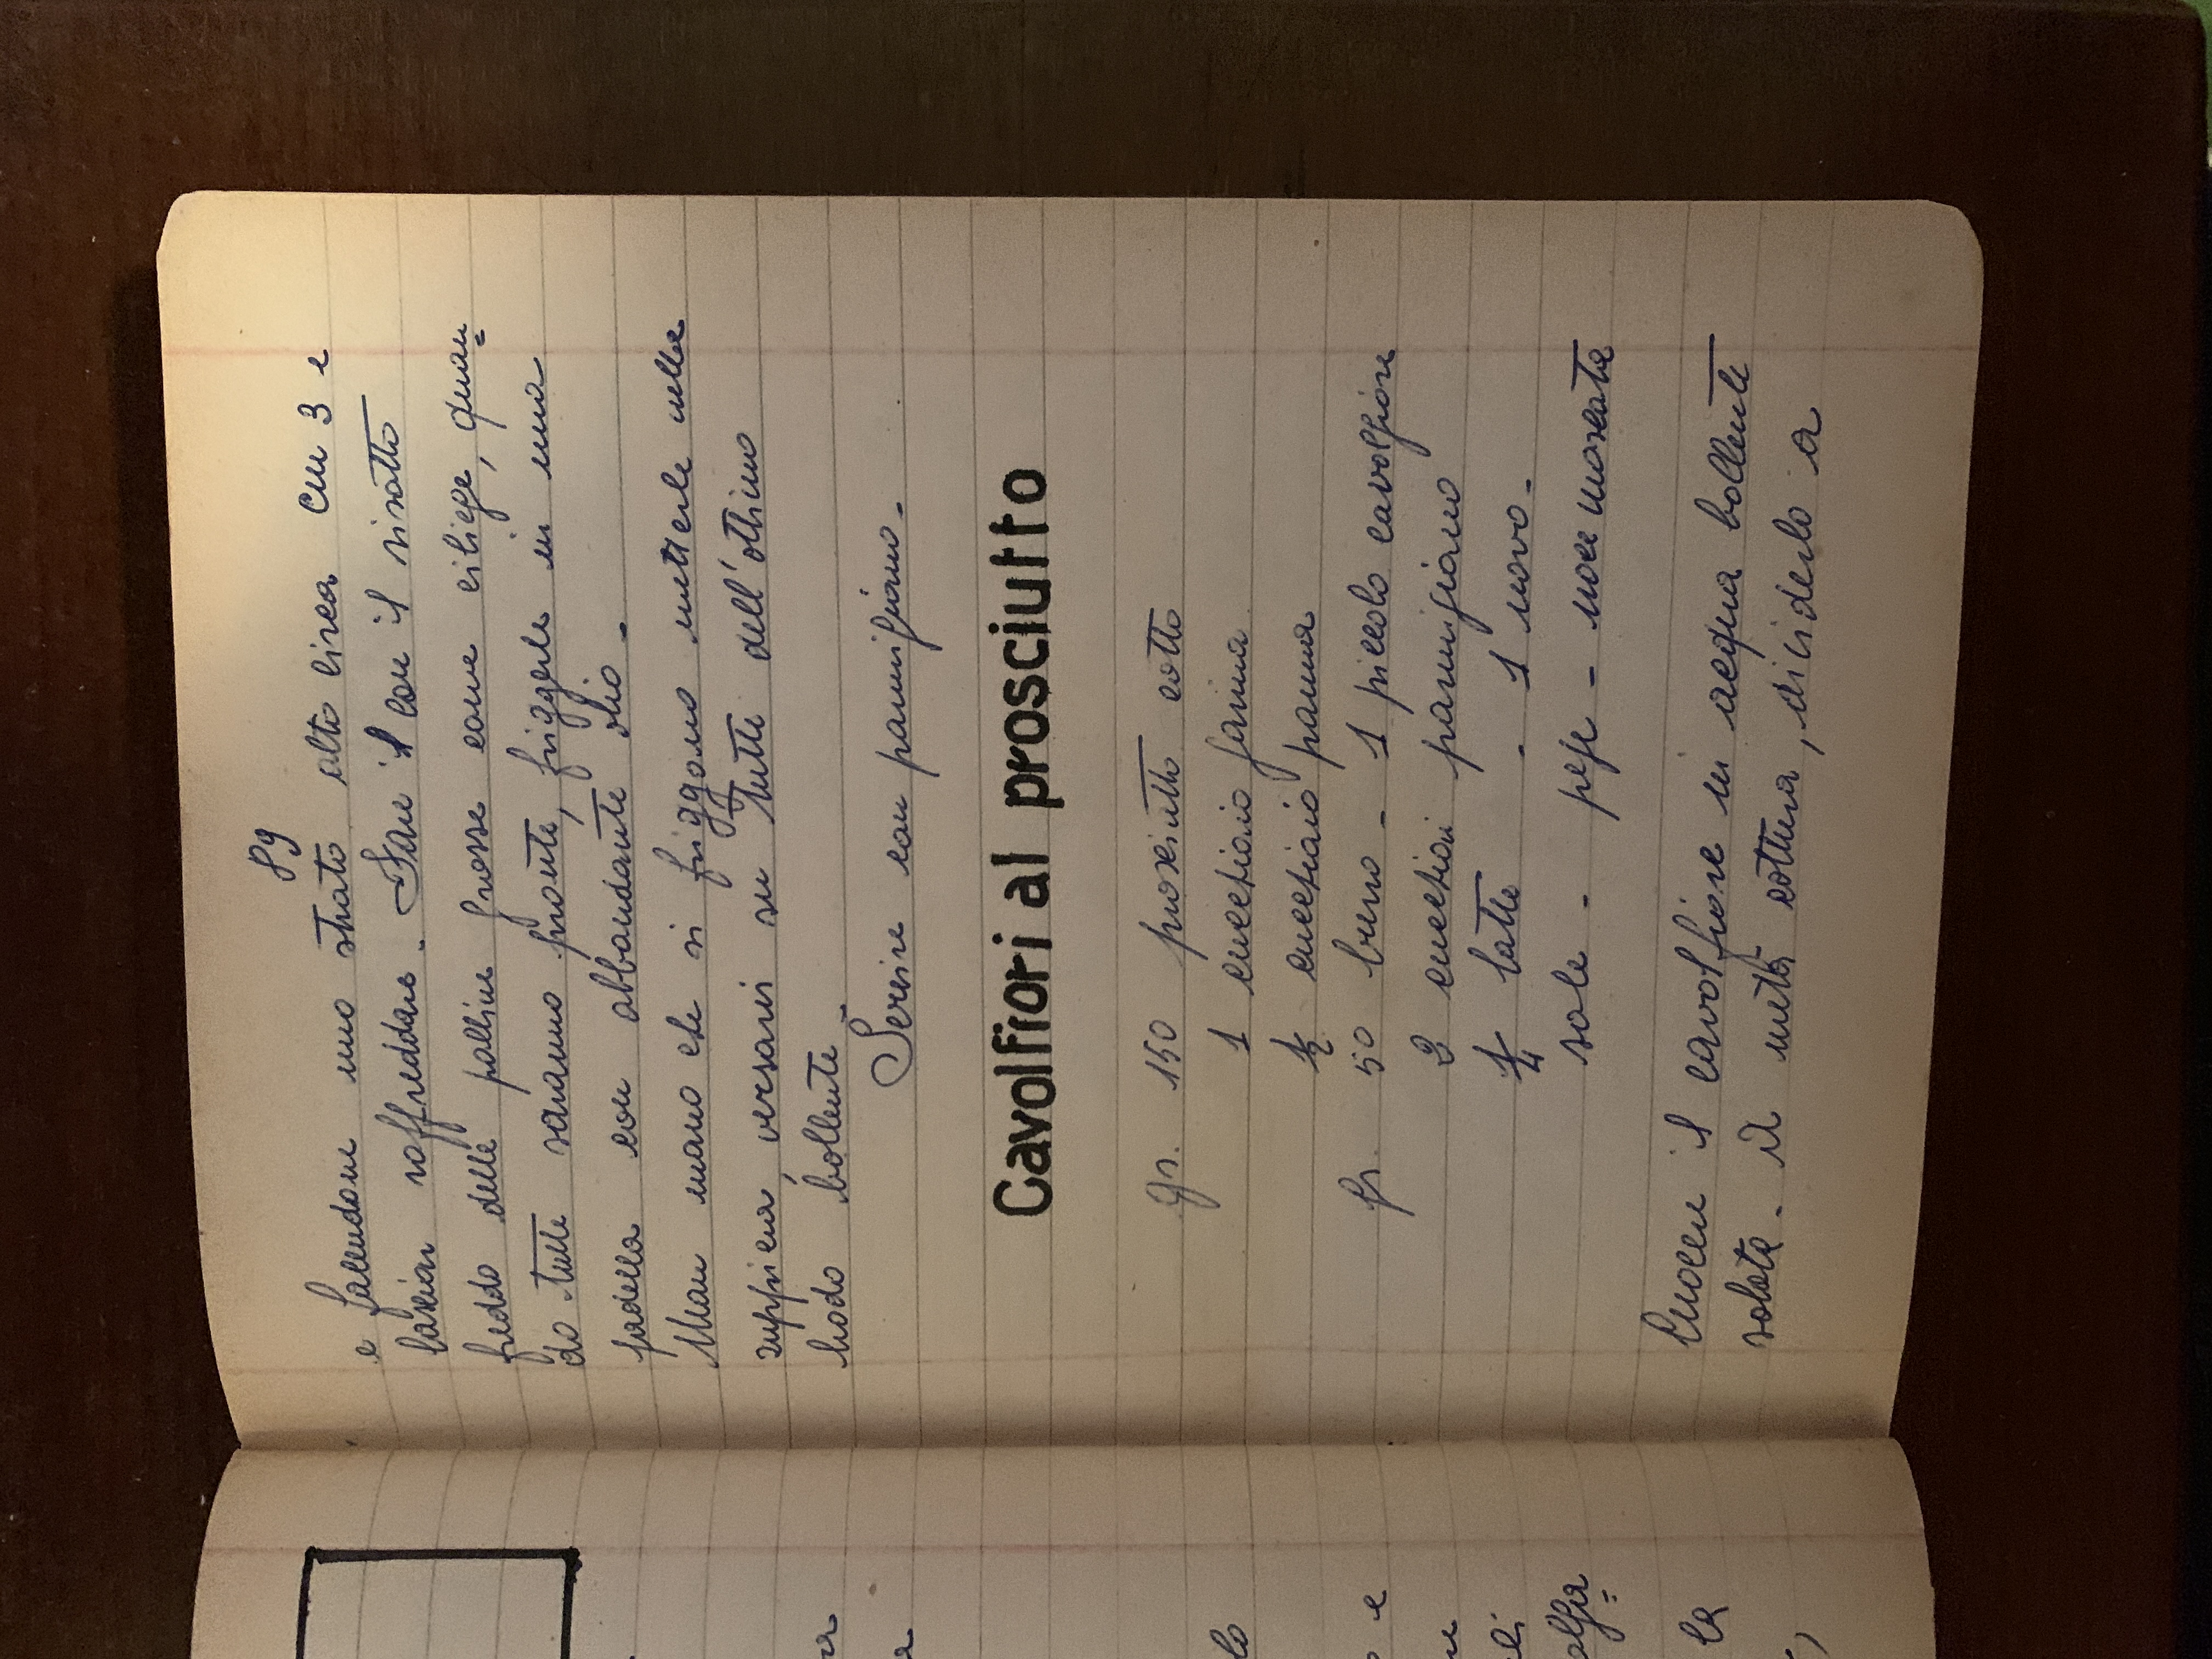 89
e facendone uno strato alto circa cm 3 e
lasciar raffreddare. Fare il con il risotto
freddo delle palline grosse come ciliege, quan=
do tutte saranno pronte, friggerle in una
padella con abbondante olio.
Man mano che si friggono metterle nella
zuppiera, versarvi su tutte dell'ottimo
brodo bollente.
Servire con parmigiano.
Cavolfiori al prosciutto
gr. 150 prosciutto cotto
1 cucchiaio farina
1/2 cucchiaio panna
gr. 50 burro - 1 piccolo cavolfiore
2 cucchiai parmigiano
1/4 latte - 1 uovo -
sale - pepe - noce moscata
Cuocere il cavolfiore in acqua bollente
salata. A metà cottura, dividerlo a